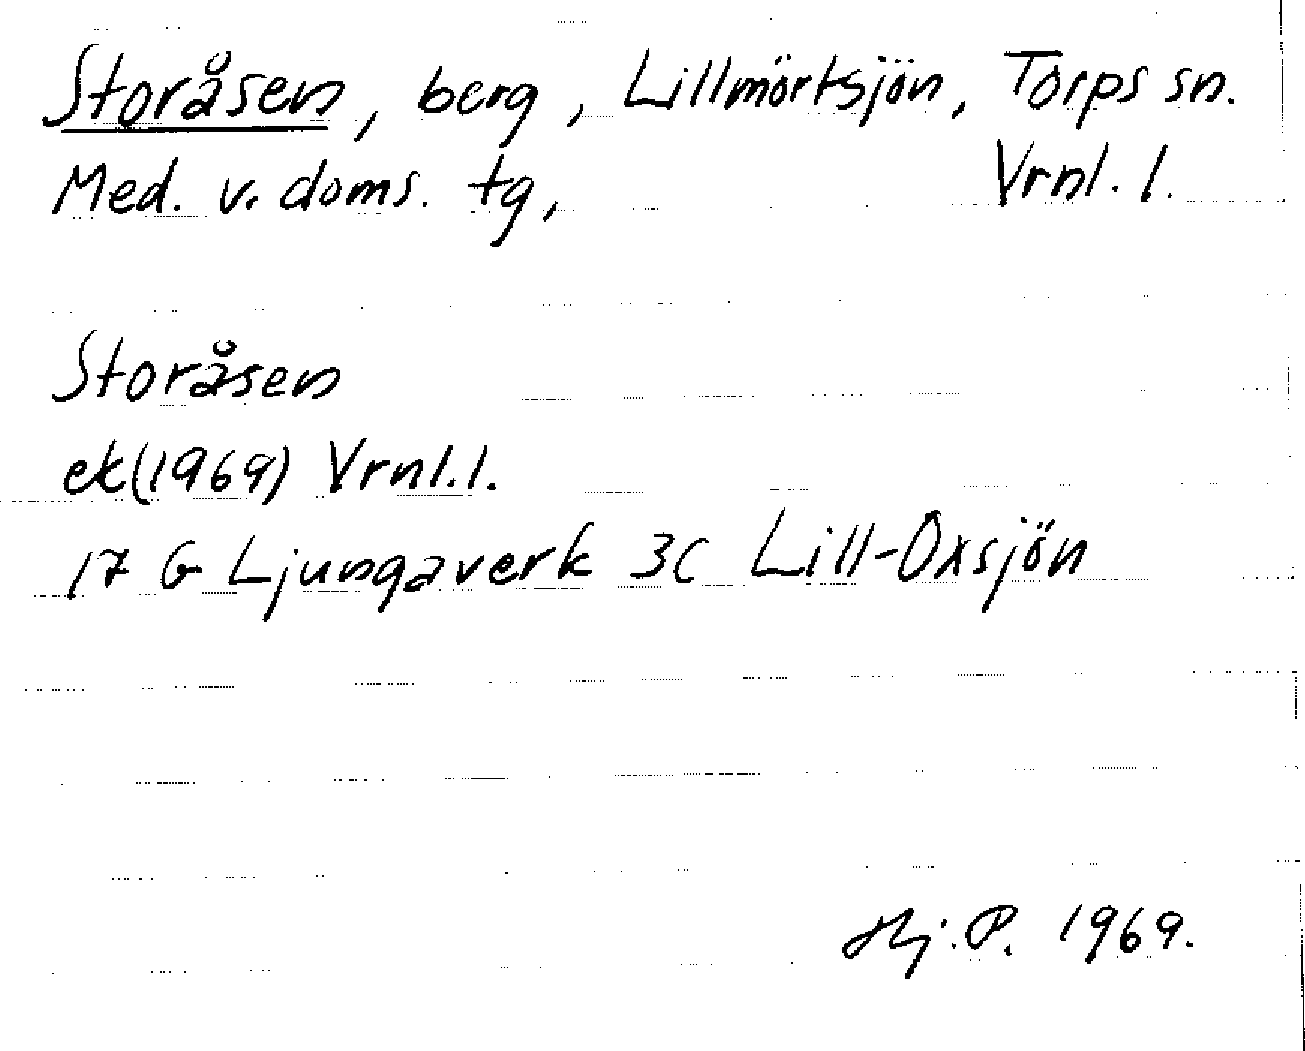 Storåsen, berg, Lillmörtsjön, Torps sn.
Med. v. doms. tg, Vrnl. l.
Storåsen
ek(1969) Vrnl.l.
17 G Ljungaverk 3c Lill-Oxsjön
Hj. P. 1969.